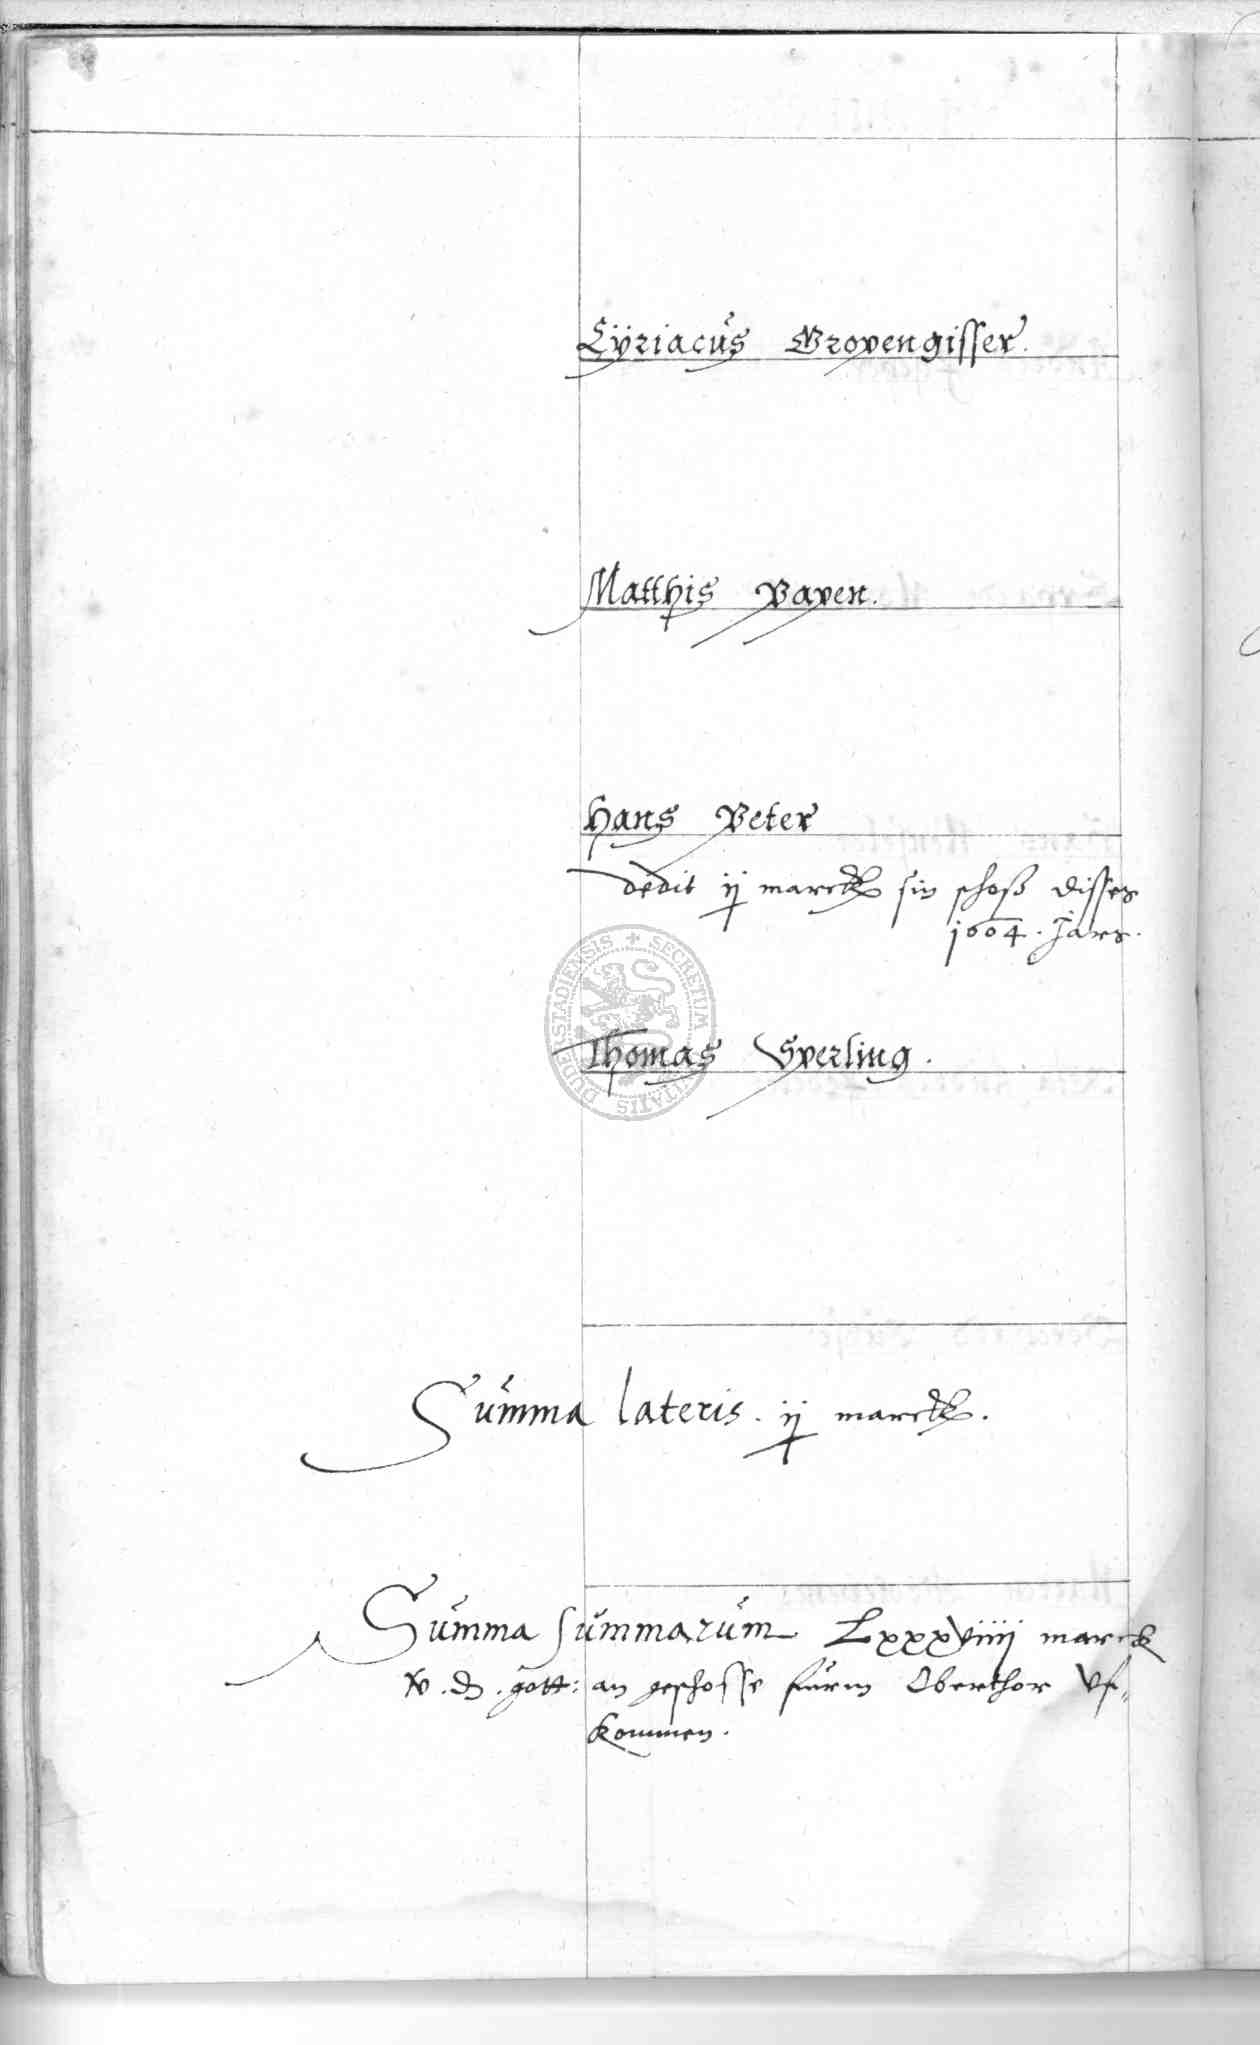 Cÿriacus Gropengisser.
Matthis Papen.
Hans Peter
dedit ij marck sin schoß disses
1604. Jars.
Thomas Sperling.
SECRETUM CIVITATIS DUDERSTADIENSIS
Summa lateris. ij marck.
Summa summarum Lxxxviiij marck
v. d. gott: an geschosse fürm Oberthor vf„
kommen.